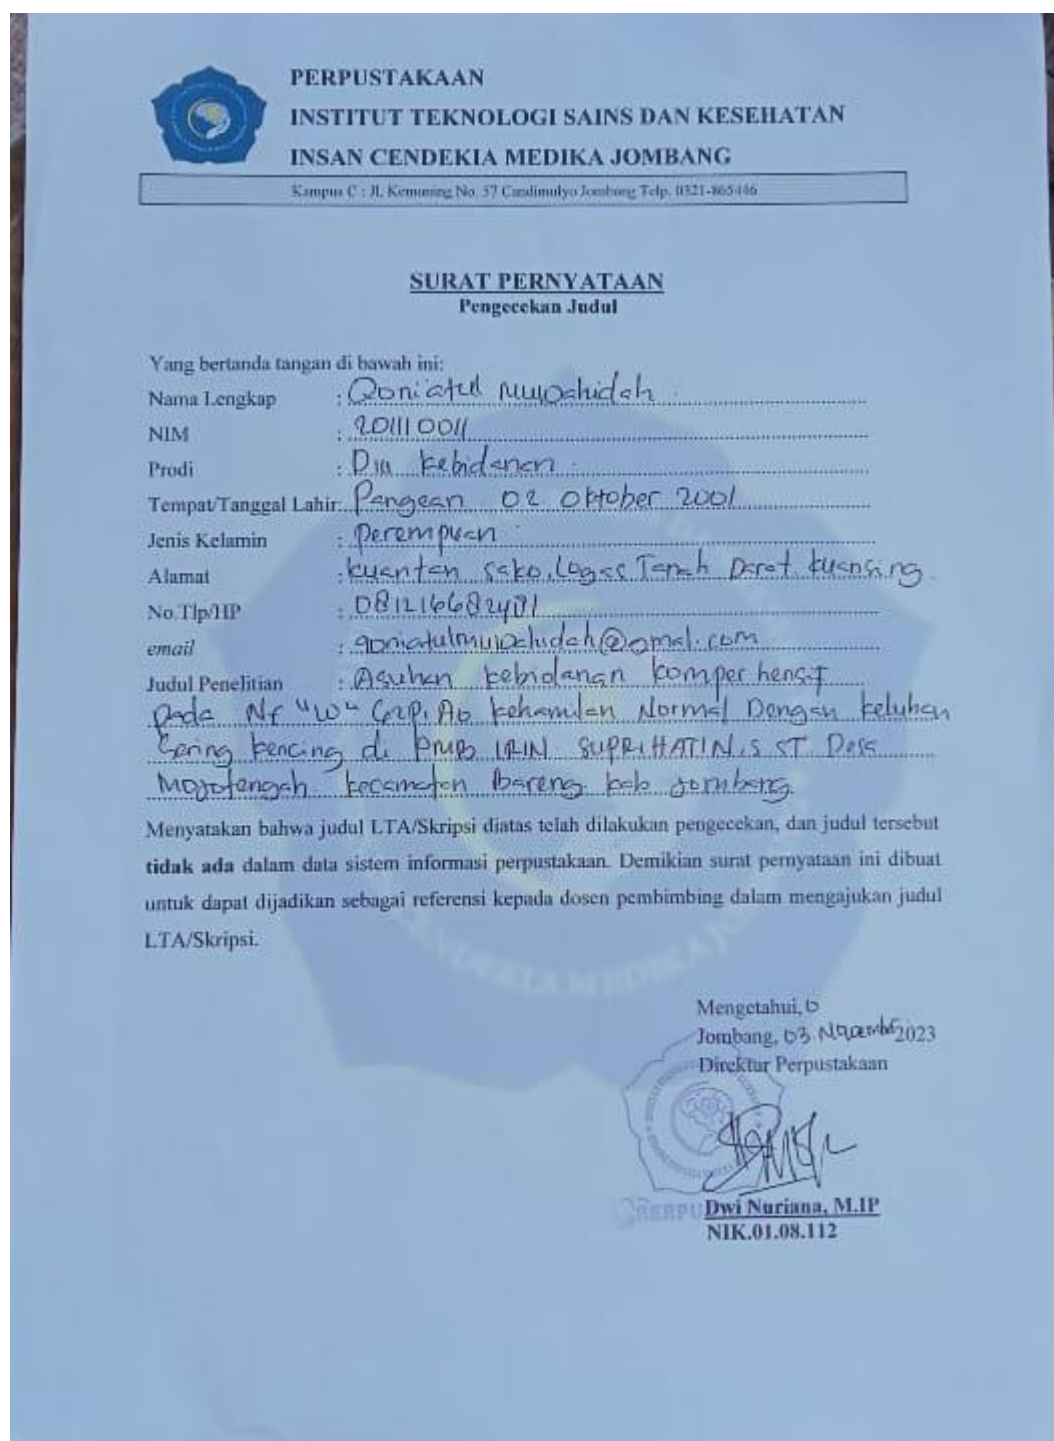 PERPUSTAKAAN
INSTITUT TEKNOLOGI SAINS DAN KESEHATAN
INSAN CENDEKIA MEDIKA JOMBANG
Kampus C : Jl. Kemuning No. 57 Candimulyo Jombang Telp. 0321-865446
SURAT PERNYATAAN
Pengecekan Judul
Yang bertanda tangan di bawah ini:
Nama Lengkap : Qoniatul Mujahidah
NIM : 201110011
Prodi : DIII kebidanan
Tempat/Tanggal Lahir: Pangean 02 Oktober 2001
Jenis Kelamin : Perempuan
Alamat : kuantan sako, Logas Tanah Darat kuansing
No.Tlp/HP :
email :
Judul Penelitian : Asuhan kebidanan komperhensif
pada "W" kehamilan Normal Dengan keluhan
Sering kencing di PMB IRIN SUPRIHATIN, S ST Desa
Mojotengah kecamatan Bareng kab Jombang
Menyatakan bahwa judul LTA/Skripsi diatas telah dilakukan pengecekan, dan judul tersebut
tidak ada dalam data sistem informasi perpustakaan. Demikian surat pernyataan ini dibuat
untuk dapat dijadikan sebagai referensi kepada dosen pembimbing dalam mengajukan judul
LTA/Skripsi.
Mengetahui,
Jombang, 03 November 2023
Direktur Perpustakaan
Dwi Nuriana, M.IP
NIK.01.08.112